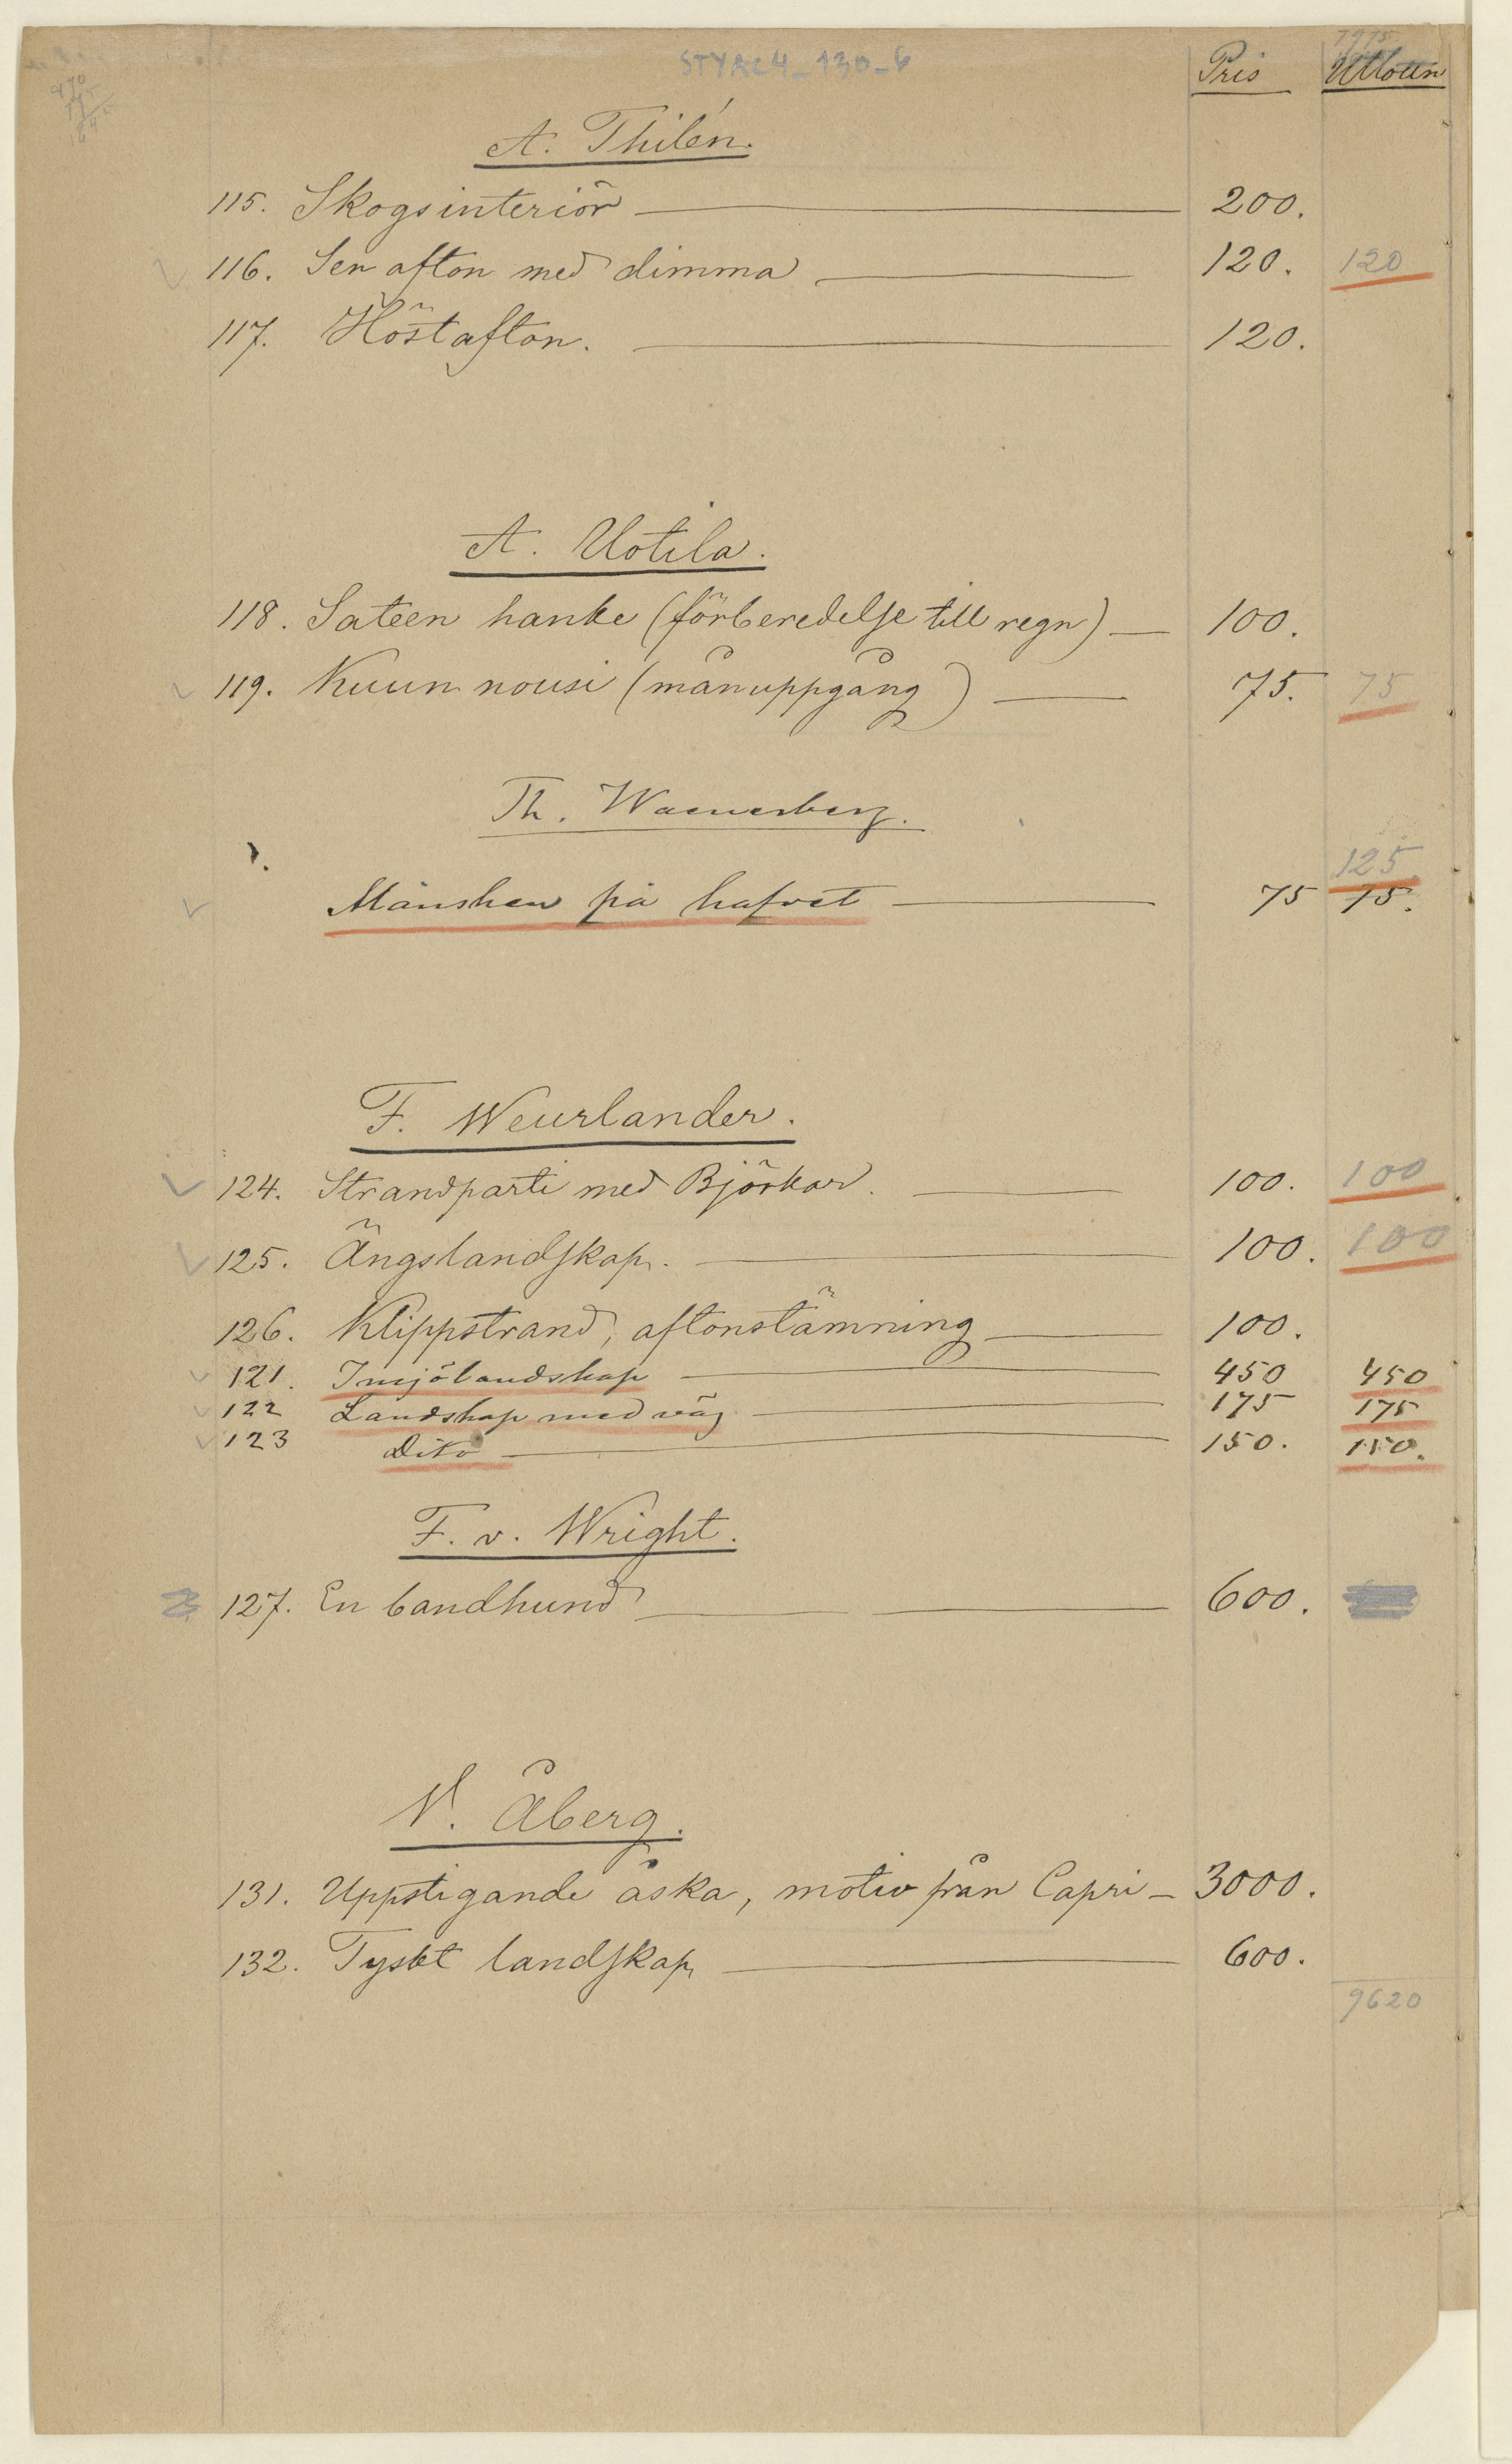 STYAC4_130_6
7975
Pris Utlottn
A. Thilén.
115. Skogsinteriör 200.
116. Sen afton med dimma 120. 120
117. Höstafton. 120.
A. Uotila.
118. Sateen hanke (förberedelse till regn) 100.
119. Kuun nousi (månuppgång) 75. 75
Th. Waenerberg.
125
Månsken på hafvet 75 75.
F. Weurlander.
124. Strandparti med Björkar. 100. 100
125. Ängslandskap. 100. 100
126. Klippstrand, aftonstämning 100.
121. Insjölandskap 450 450
122 Landskap med väg 175 175
123 Dito 150. 150.
F. v. Wright.
127. En bandhund 600.
V. Åberg.
131. Uppstigande åska, motiv från Capri 3000.
132. Tyskt landskap 600.
9620